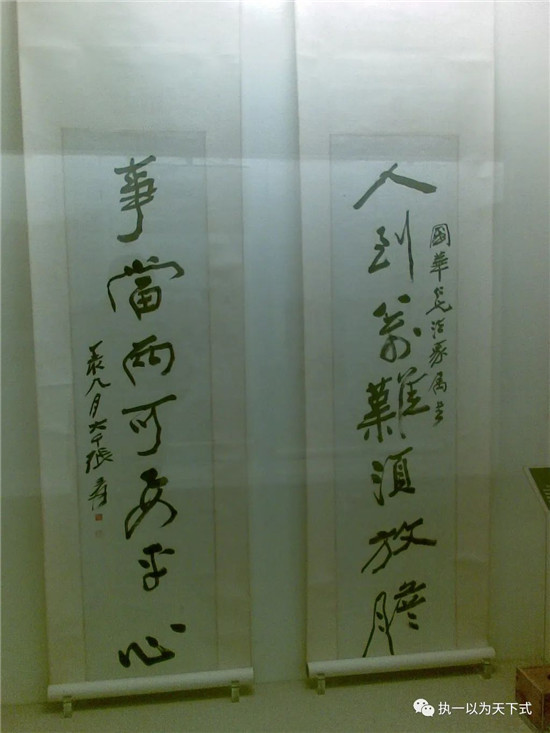 人到萬難須放膽
國華兄法家屬書
事當兩可要平心
八月大千張爰
执一以为天下式